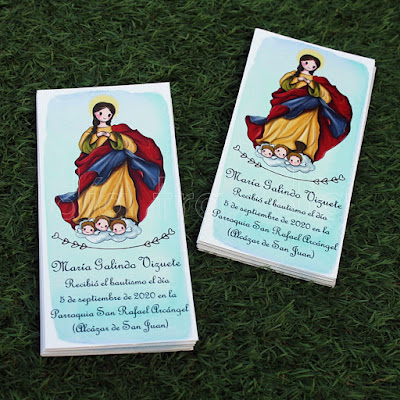 María Galindo Vizuete
Recibió el bautismo el día
5 de septiembre de 2020 en la
Parroquia San Rafael Arcángel
(Alcázar de San Juan)
María Galindo Vizuete
Recibió el bautismo el día
5 de septiembre de 2020 en la
Parroquia San Rafael Arcángel
(Alcázar de San Juan)